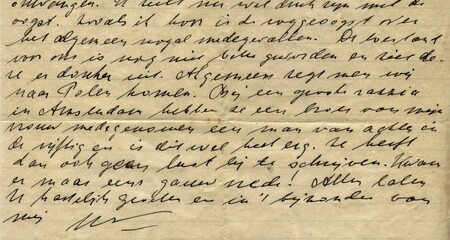 ontvangen. U zult nu wel druk zijn met de
oogst. Zooals ik hoor is de roggeoogst over
het algemeen nogal medegevallen. De toestand
voor ons is nog niet beter geworden en ziet de-
ze er donker uit. Algemeen zegt men wij
naar Polen komen. Bij een groote razzia
in Amsterdam hebben ze een broer van mijn
vrouw medegenomen een man van achter in
de vijftig en is dit wel heel erg. Ze heeft
dan ook geen lust bij te schrijven. Kwam
er maar eens gauw vrede! Allen laten
U hartelijk groeten en in 't bijzonder van
mij